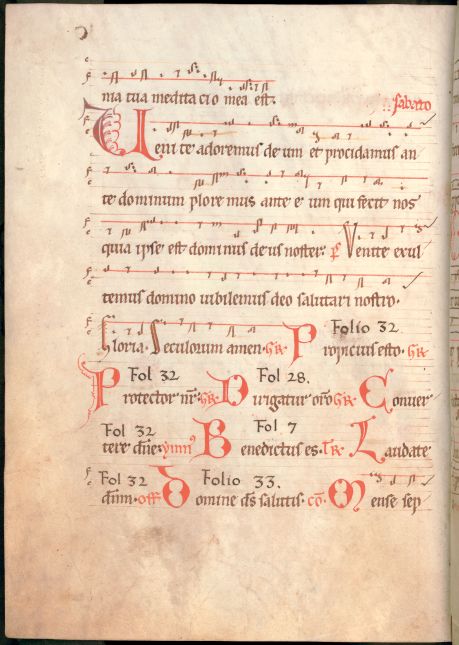 nia tua meditacio mea est. sabato
Venite adoremus deum et procidamus an
te dominum ploremus ante eum qui fecit nos
quia ipse est dominus deus noster. p̄ Venite exul
temus domino iubilemus deo salutari nostro.
Gloria. Seculorum amen. Gr̄ Folio 32. Propicius esto. Gr̄
Fol 32 Protector nr̄. Gr̄ Fol 28. Dirigatur oro Gr̄ Conver
Fol 32 tere dn̄e. ymn9 Fol 7 Benedictus es. Tr̄ Laudate
Fol 32 dn̄m. off Folio 33. Domine ds̄ salutis. cō. Mense sep